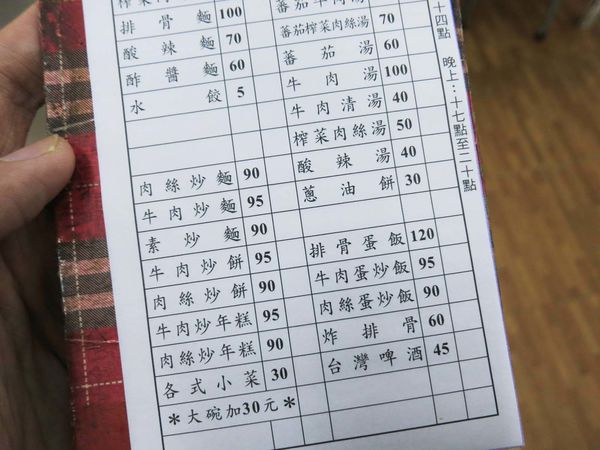 榨菜
排骨麵 100
酸辣麵 70
酢醬麵 60
水餃 5
肉絲炒麵 90
牛肉炒麵 95
素炒麵 90
牛肉炒餅 95
肉絲炒餅 90
牛肉炒年糕 95
肉絲炒年糕 90
各式小菜 30
＊大碗加30元＊
番茄牛肉湯
番茄榨菜肉絲湯 70
番茄湯 60
牛肉湯 100
牛肉清湯 40
榨菜肉絲湯 50
酸辣湯 40
蔥油餅 30
排骨蛋飯 120
牛肉蛋炒飯 95
肉絲蛋炒飯 90
炸排骨 60
台灣啤酒 45
十四點 晚上：十七點至二十點